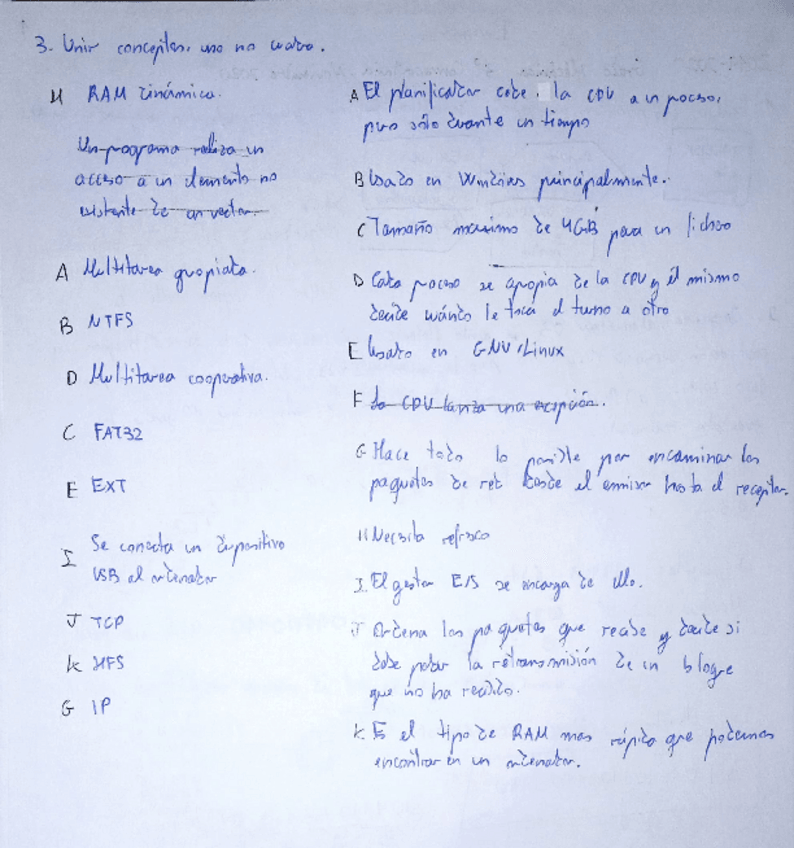 3. Unir conceptos, uno no cuadra.
H RAM dinámica.
Un programa realiza un
acceso a un elemento no
existente de un vector.
A Multitarea apropiativa.
B NTFS
D Multitarea cooperativa.
C FAT32
E EXT
I Se conecta un dispositivo
USB al ordenador
J TCP
K HFS
G IP
A El planificador cede la CPU a un proceso,
pero sólo durante un tiempo
B Usado en Windows principalmente.
C Tamaño maximo de 4GiB para un fichero
D Cada proceso se apropia de la CPU y él mismo
decide cuándo le toca el turno a otro
E Usado en GNU/Linux
F La CPU lanza una excepción.
G Hace todo lo posible por encaminar los
paquetes de red desde el emisor hasta el receptor.
H Necesita refresco
I. El gestor E/S se encarga de ello.
J Ordena los paquetes que recibe y decide si
debe pedir la retransmisión de un bloque
que no ha recibido.
K Es el tipo de RAM mas rápido que podemos
encontrar en un ordenador.